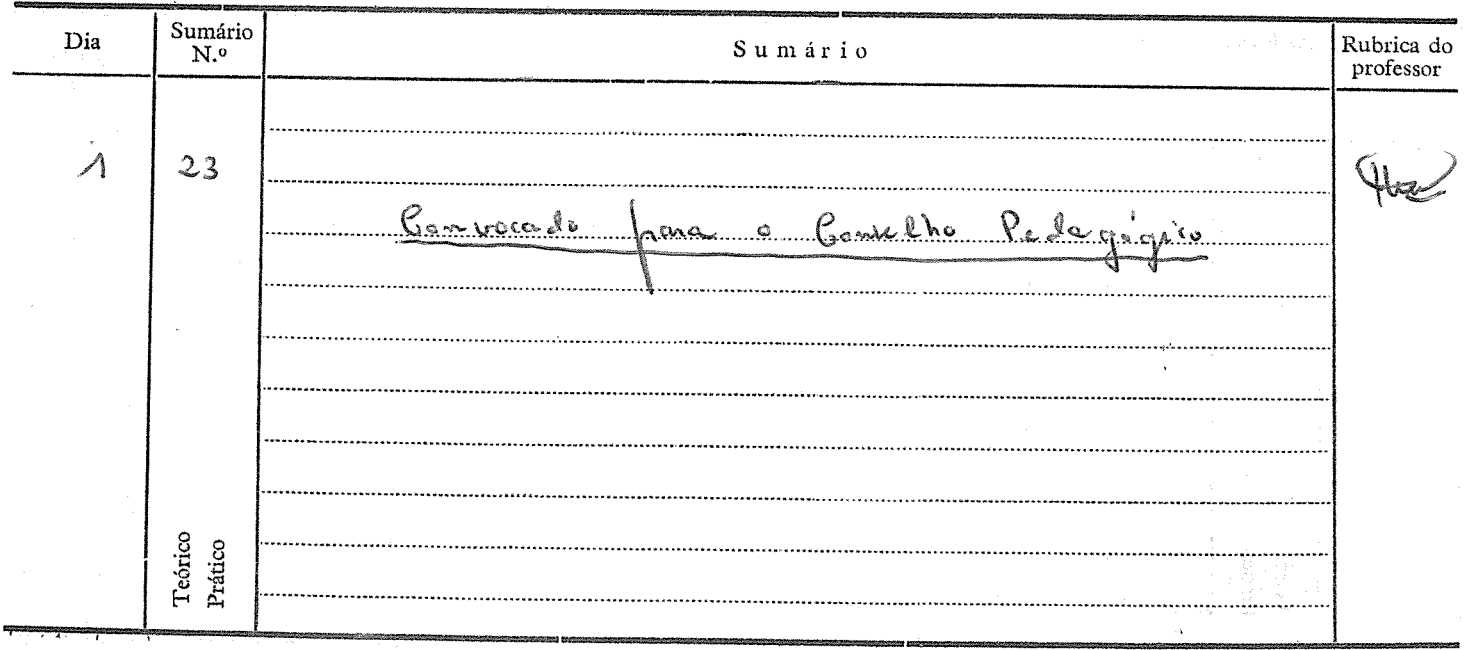 Dia
Sumário N.º
Sumário
Rubrica do professor
1
23
Convocado para o Conselho Pedagógico
Teórico
Prático